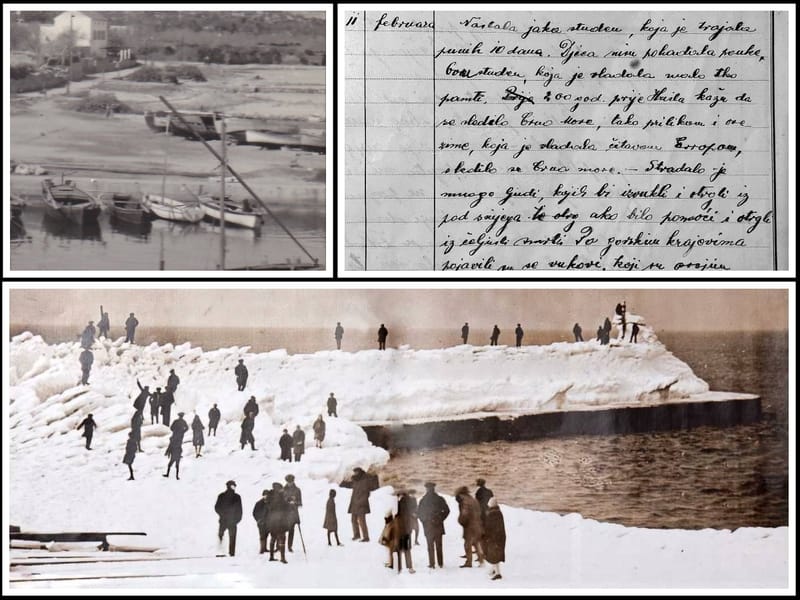 11 februara Nastala jaka studen, koja je trajala
punih 10 dana. Djeca nisu pohađala pouke,
studen, koja je vladala malo tko
pamti. Prije 200 god. prije Krista kažu da
se sledilo Crno more, tako prilikom i ove
zime, koja je vladala čitavom Evropom,
sledilo se Crno more. – Stradalo je
mnogo ljudi, kojih bi izvukli i otrgli iz
pod snijega te ovo ako bilo pomoći i otrgli
iz čeljusti smrti Po gorskim krajevima
pojavili su se vukovi, koji su